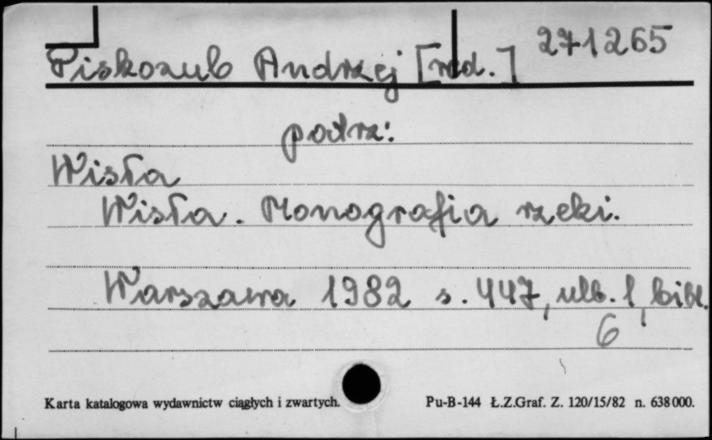 Piskozub Andrzej [red.] 271265
podrz:
Wisła
Wisła. Monografia rzeki.
Warszawa 1982 s. 447, ulb. 1, bibl.
6
Karta katalogowa wydawnictw ciągłych i zwartych. Pu-B-144 Ł.Z.Graf. Z. 120/15/82 n. 638000.